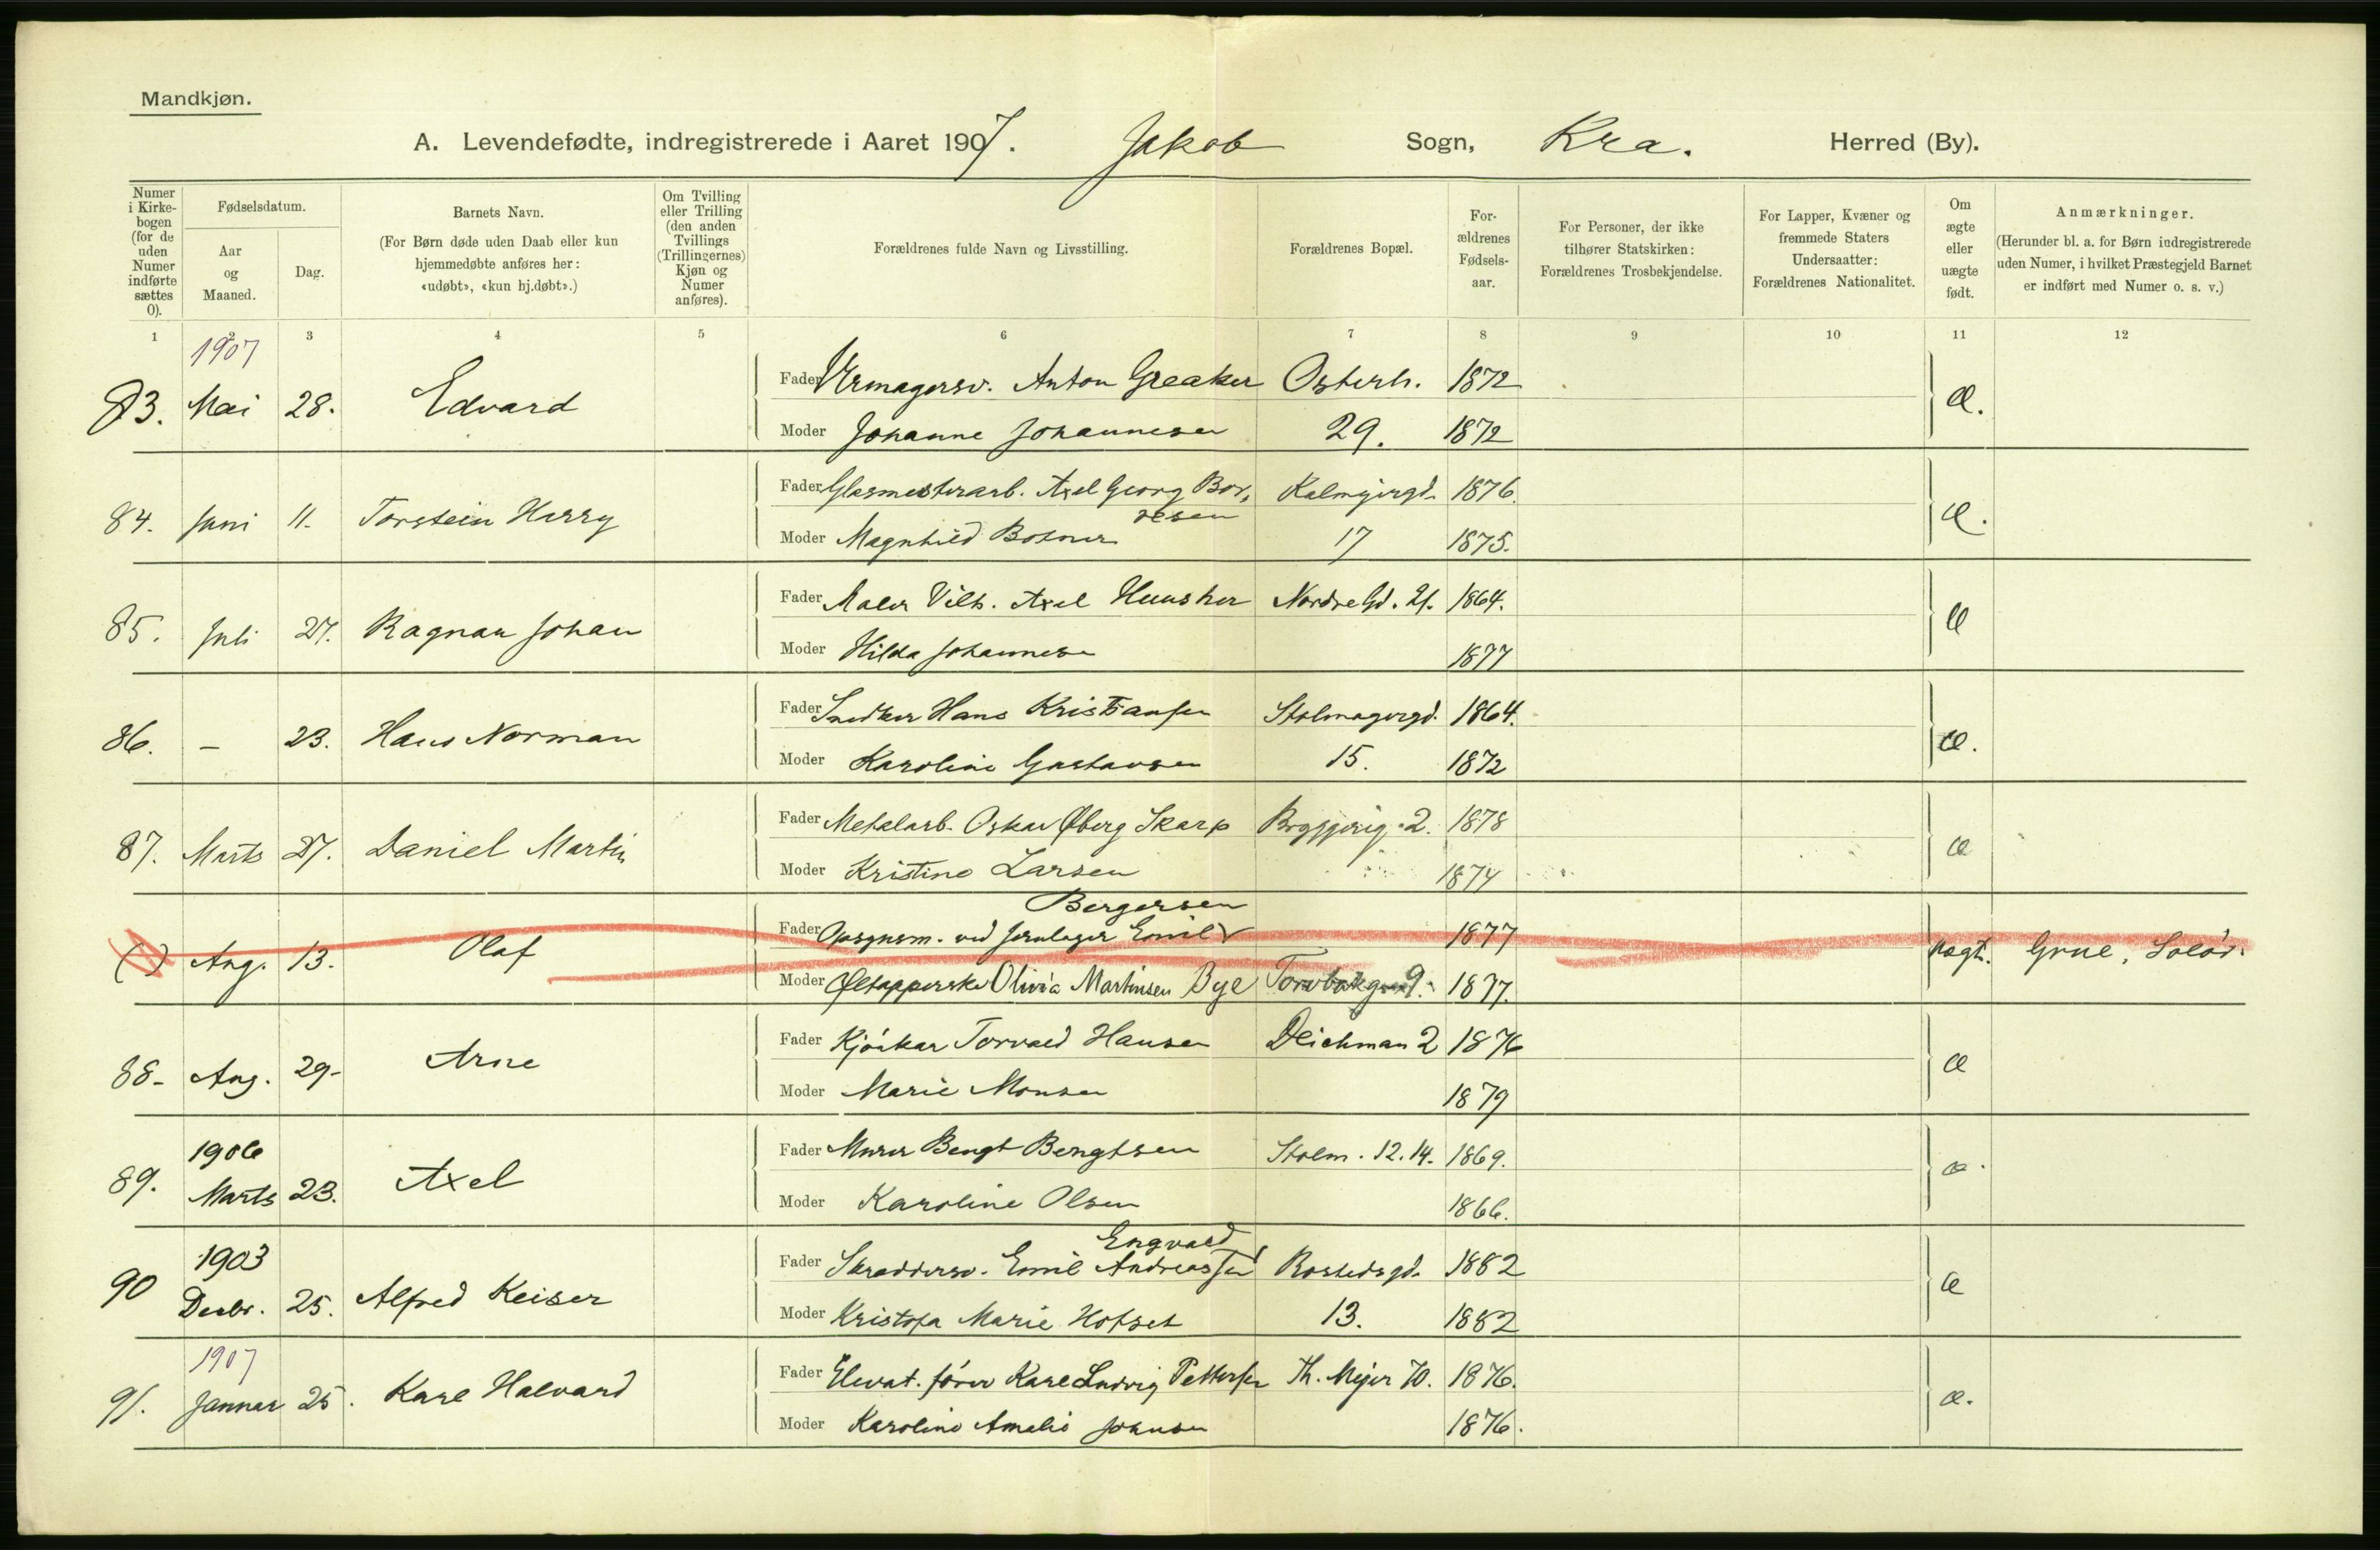 Mandkjøn.
A. Levendefødte, indregistrerede i Aaret 1907. Jakob Sogn, Kra. Herred (By).
Numer i Kirkebogen (for de uden Numer indførte sættes 0).
Fødselsdatum.
Aar og Maaned.
Dag.
Barnets Navn.
(For Børn døde uden Daab eller kun hjemmedøbte anføres her: «udøbt», «kun hj.døbt».)
Om Tvilling eller Trilling (den anden Tvillings (Trillingernes) Kjøn og Numer anføres).
Forældrenes fulde Navn og Livsstilling.
Forældrenes Bopæl.
Forældrenes Fødselsaar.
For Personer, der ikke tilhører Statskirken: Forældrenes Trosbekjendelse.
For Lapper, Kvæner og fremmede Staters Undersaatter: Forældrenes Nationalitet.
Om ægte eller uægte født.
Anmærkninger.
(Herunder bl. a. for Børn indregistrerede uden Numer, i hvilket Præstegjeld Barnet er indført med Numer o. s. v.)
1 2 3 4 5 6 7 8 9 10 11 12
1907
83. Mai 28. Edvard Fader Urmagersv. Anton Greaker Osterh. 1872 Æ.
Moder Johanne Johannesen 29. 1872
84. Juni 11. Torstein Harry Fader Glasmesterarb. Axel Georg Bor, 1876. Æ.
resen
Moder Magnhild 17 1875.
85. Juli 27. Ragnar Johan Fader Maler Vilh. Axel Nordre Gd. 21. 1864. Æ
Moder Hilda Johannesen 1877
86. — 23. Hans Norman Fader Snedker Hans Kristiansen Stolmagergd. 1864. Æ.
Moder Karoline Gustavsen 15. 1872
87. Marts 27. Daniel Martin Fader Metalarb. Oskar Øberg Skarp 2. 1878 æ
Moder Kristine Larsen 1874
Bergersen
Aug. 13. Olaf Fader Opsynsm. ved Jernlager Emil 1877 uægt. Grue, Solør.
Moder Øltapperske Olivia Martinsen Bye Torvbakgd 9. 1877.
88- Aug. 29- Arne Fader Torvald Hansen Deichman 2 1876 æ
Moder Marie Monsen 1879
1906
89. Marts 23. Axel Fader Murer Bengt Bengtsen Stolm. 12.14. 1869. æ.
Moder Karoline Olsen 1866.
1903 Engvald
90 Decbr. 25. Alfred Keiser Fader Skreddersv. Emil Andreassen Rostedsgd. 1882 æ
Moder Kristofa Marie Hofset 13. 1882
1907
91. Januar 25. Karl Halvard Fader Elevat. fører Karl Ludvig Pettersen Th. Mejer 70. 1876. æ.
Moder Karoline Amalie Johnsen 1876.